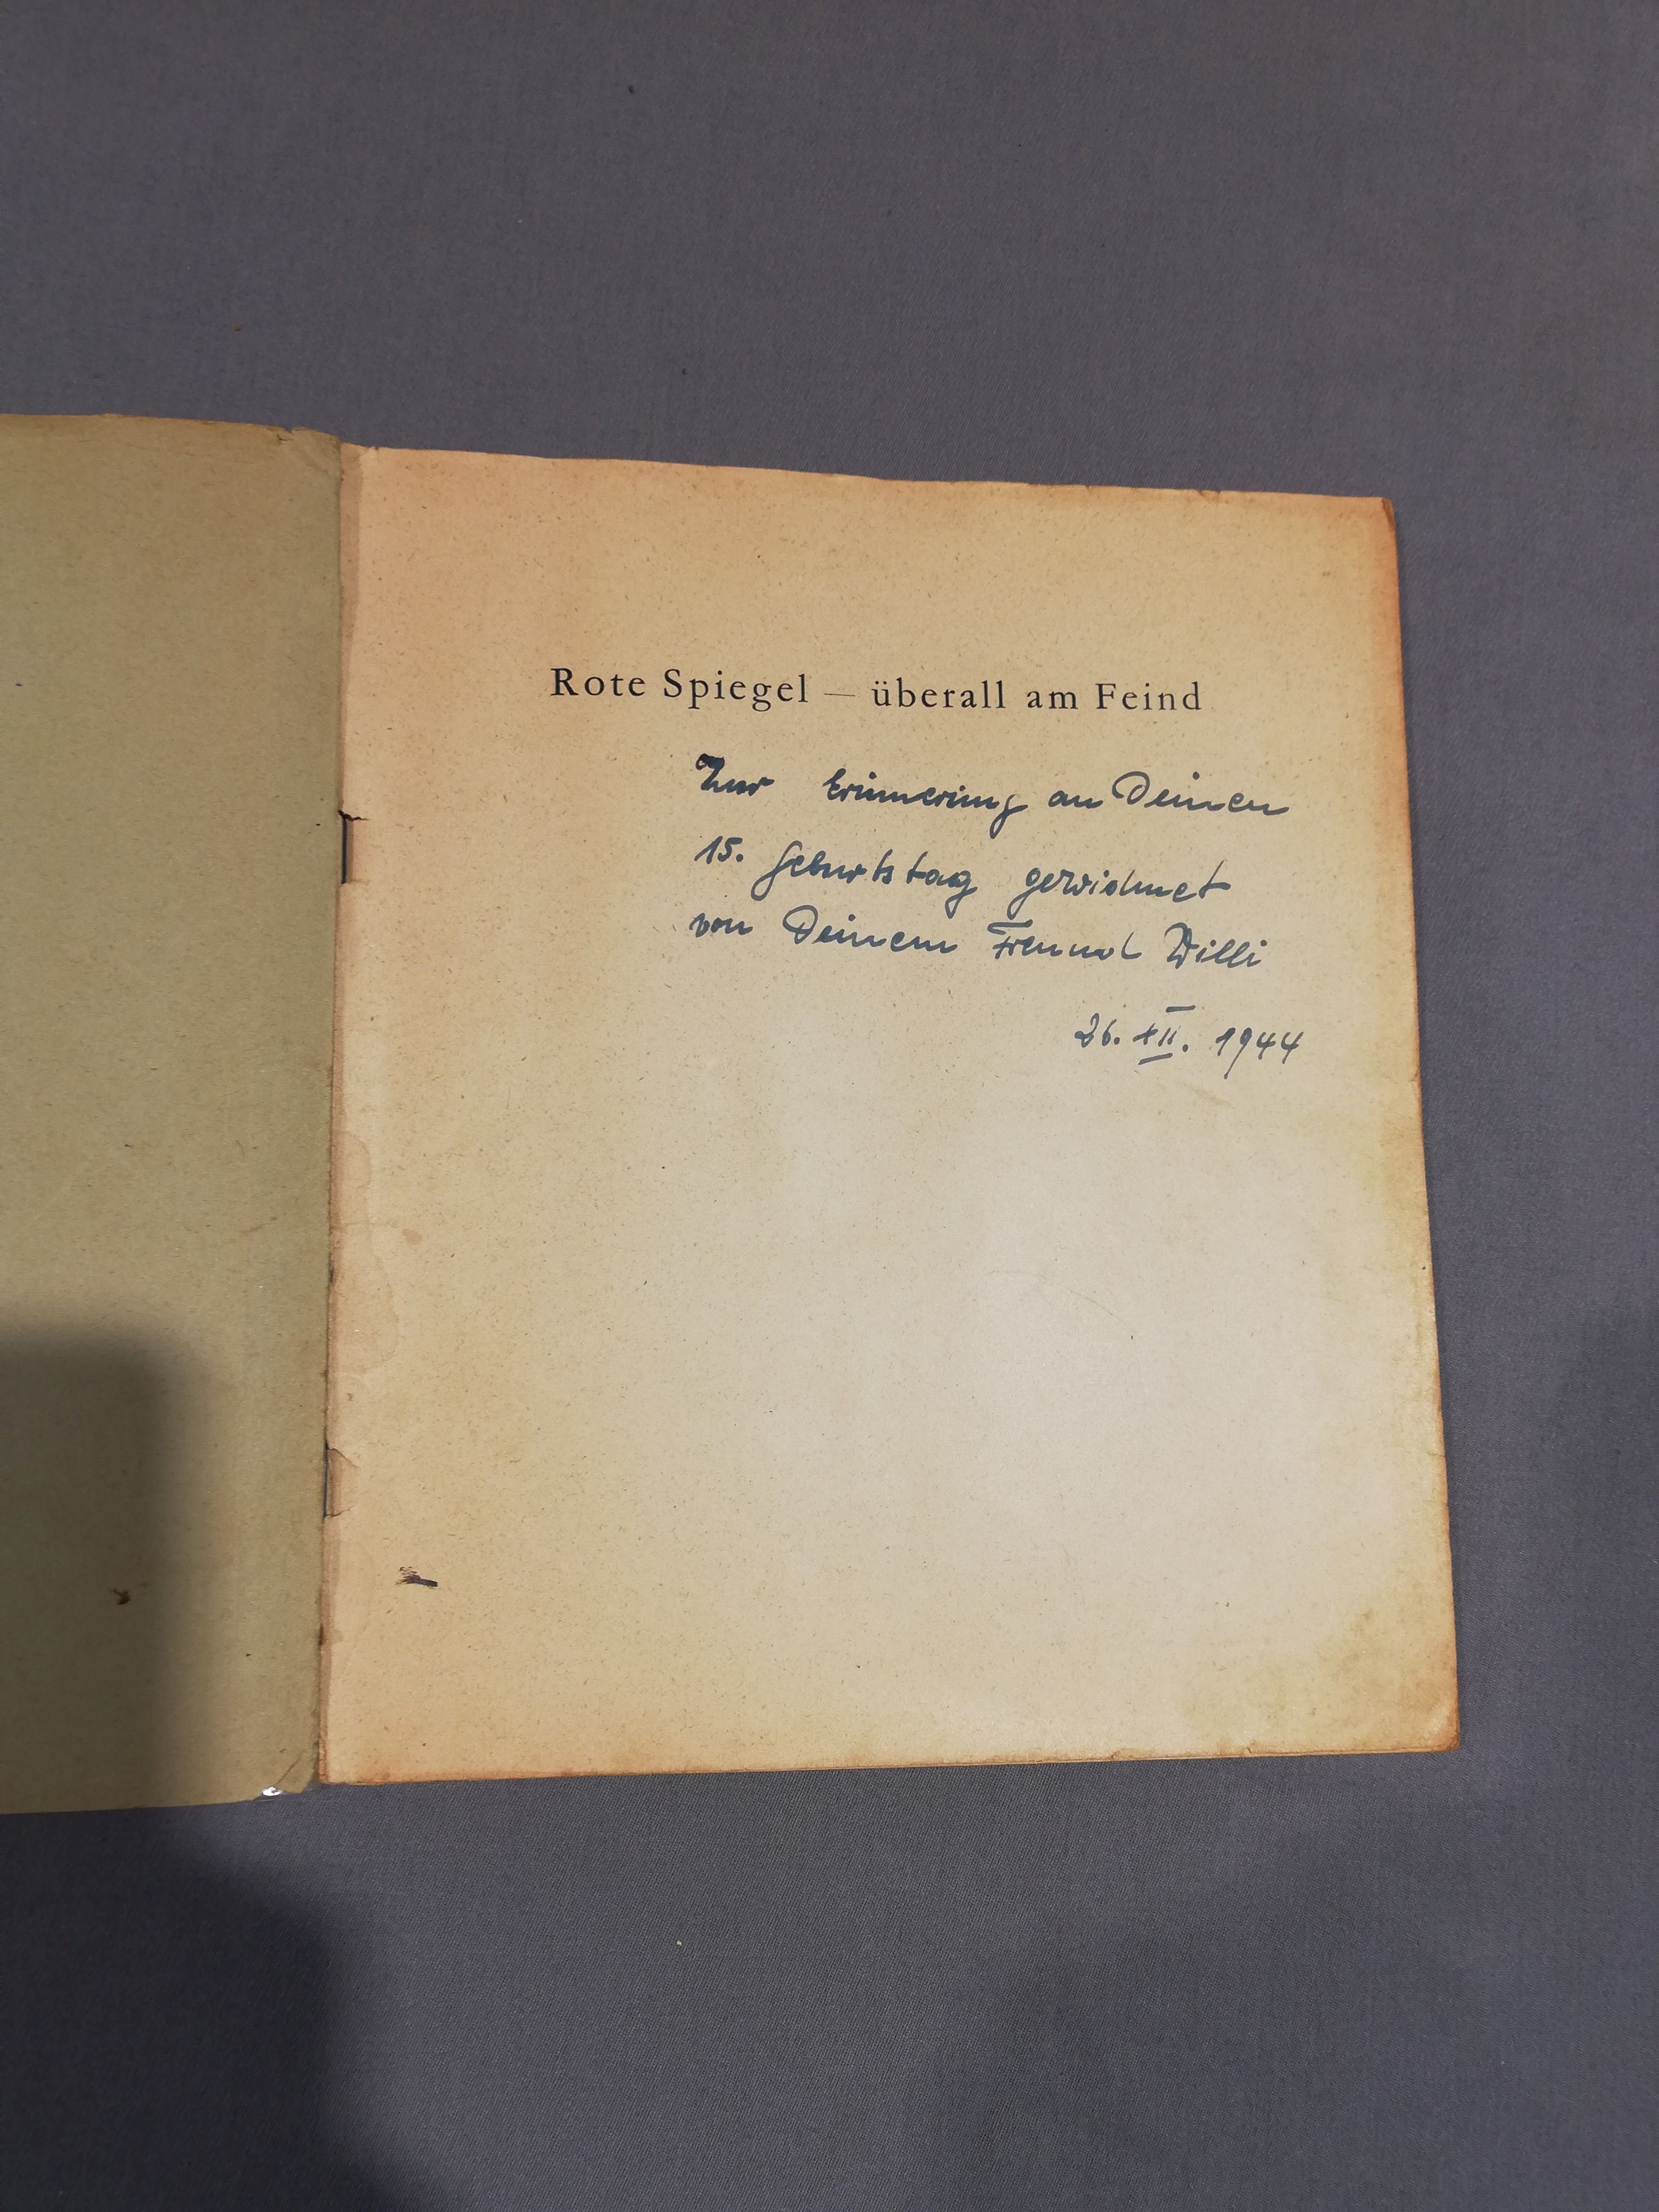 Rote Spiegel — überall am Feind
Zur Erinnerung an Deinen
15. Geburtstag gewidmet
von Deinem Freund Willi
26. XII. 1944